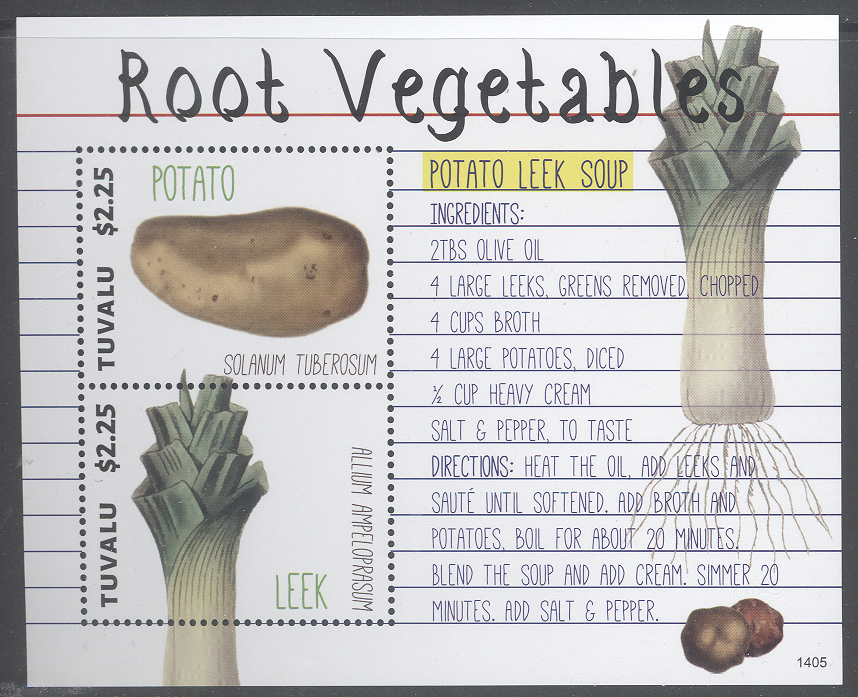 Root Vegetables
POTATO
TUVALU $2.25
SOLANUM TUBEROSUM
TUVALU $2.25
ALLIUM AMPELOPRASUM
LEEK
POTATO LEEK SOUP
INGREDIENTS:
2TBS OLIVE OIL
4 LARGE LEEKS, GREENS REMOVED, CHOPPED
4 CUPS BROTH
4 LARGE POTATOES, DICED
½ CUP HEAVY CREAM
SALT & PEPPER, TO TASTE
DIRECTIONS: HEAT THE OIL, ADD LEEKS AND
SAUTÉ UNTIL SOFTENED. ADD BROTH AND
POTATOES, BOIL FOR ABOUT 20 MINUTES.
BLEND THE SOUP AND ADD CREAM. SIMMER 20
MINUTES. ADD SALT & PEPPER.
1405